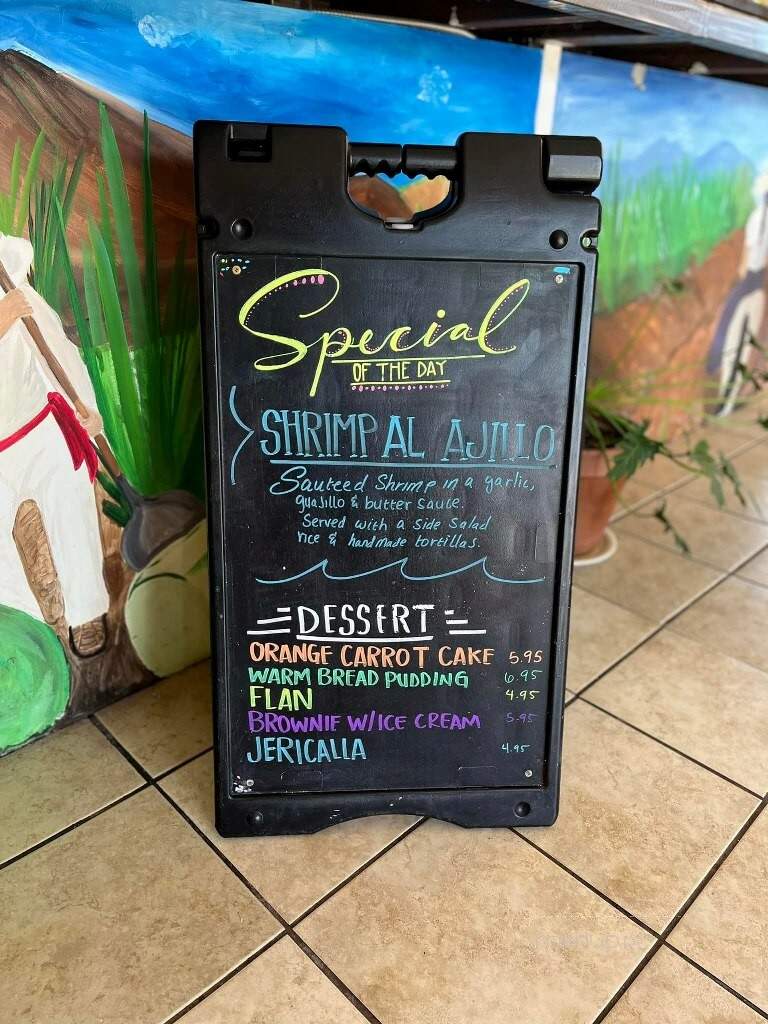 Special
OF THE DAY
SHRIMP AL AJILLO
Sauteed Shrimp in a garlic,
guajillo & butter sauce.
Served with a side salad
rice & handmade tortillas.
DESSERT
ORANGE CARROT CAKE 5.95
WARM BREAD PUDDING 6.95
FLAN 4.95
BROWNIE W/ICE CREAM 5.95
JERICALLA 4.95